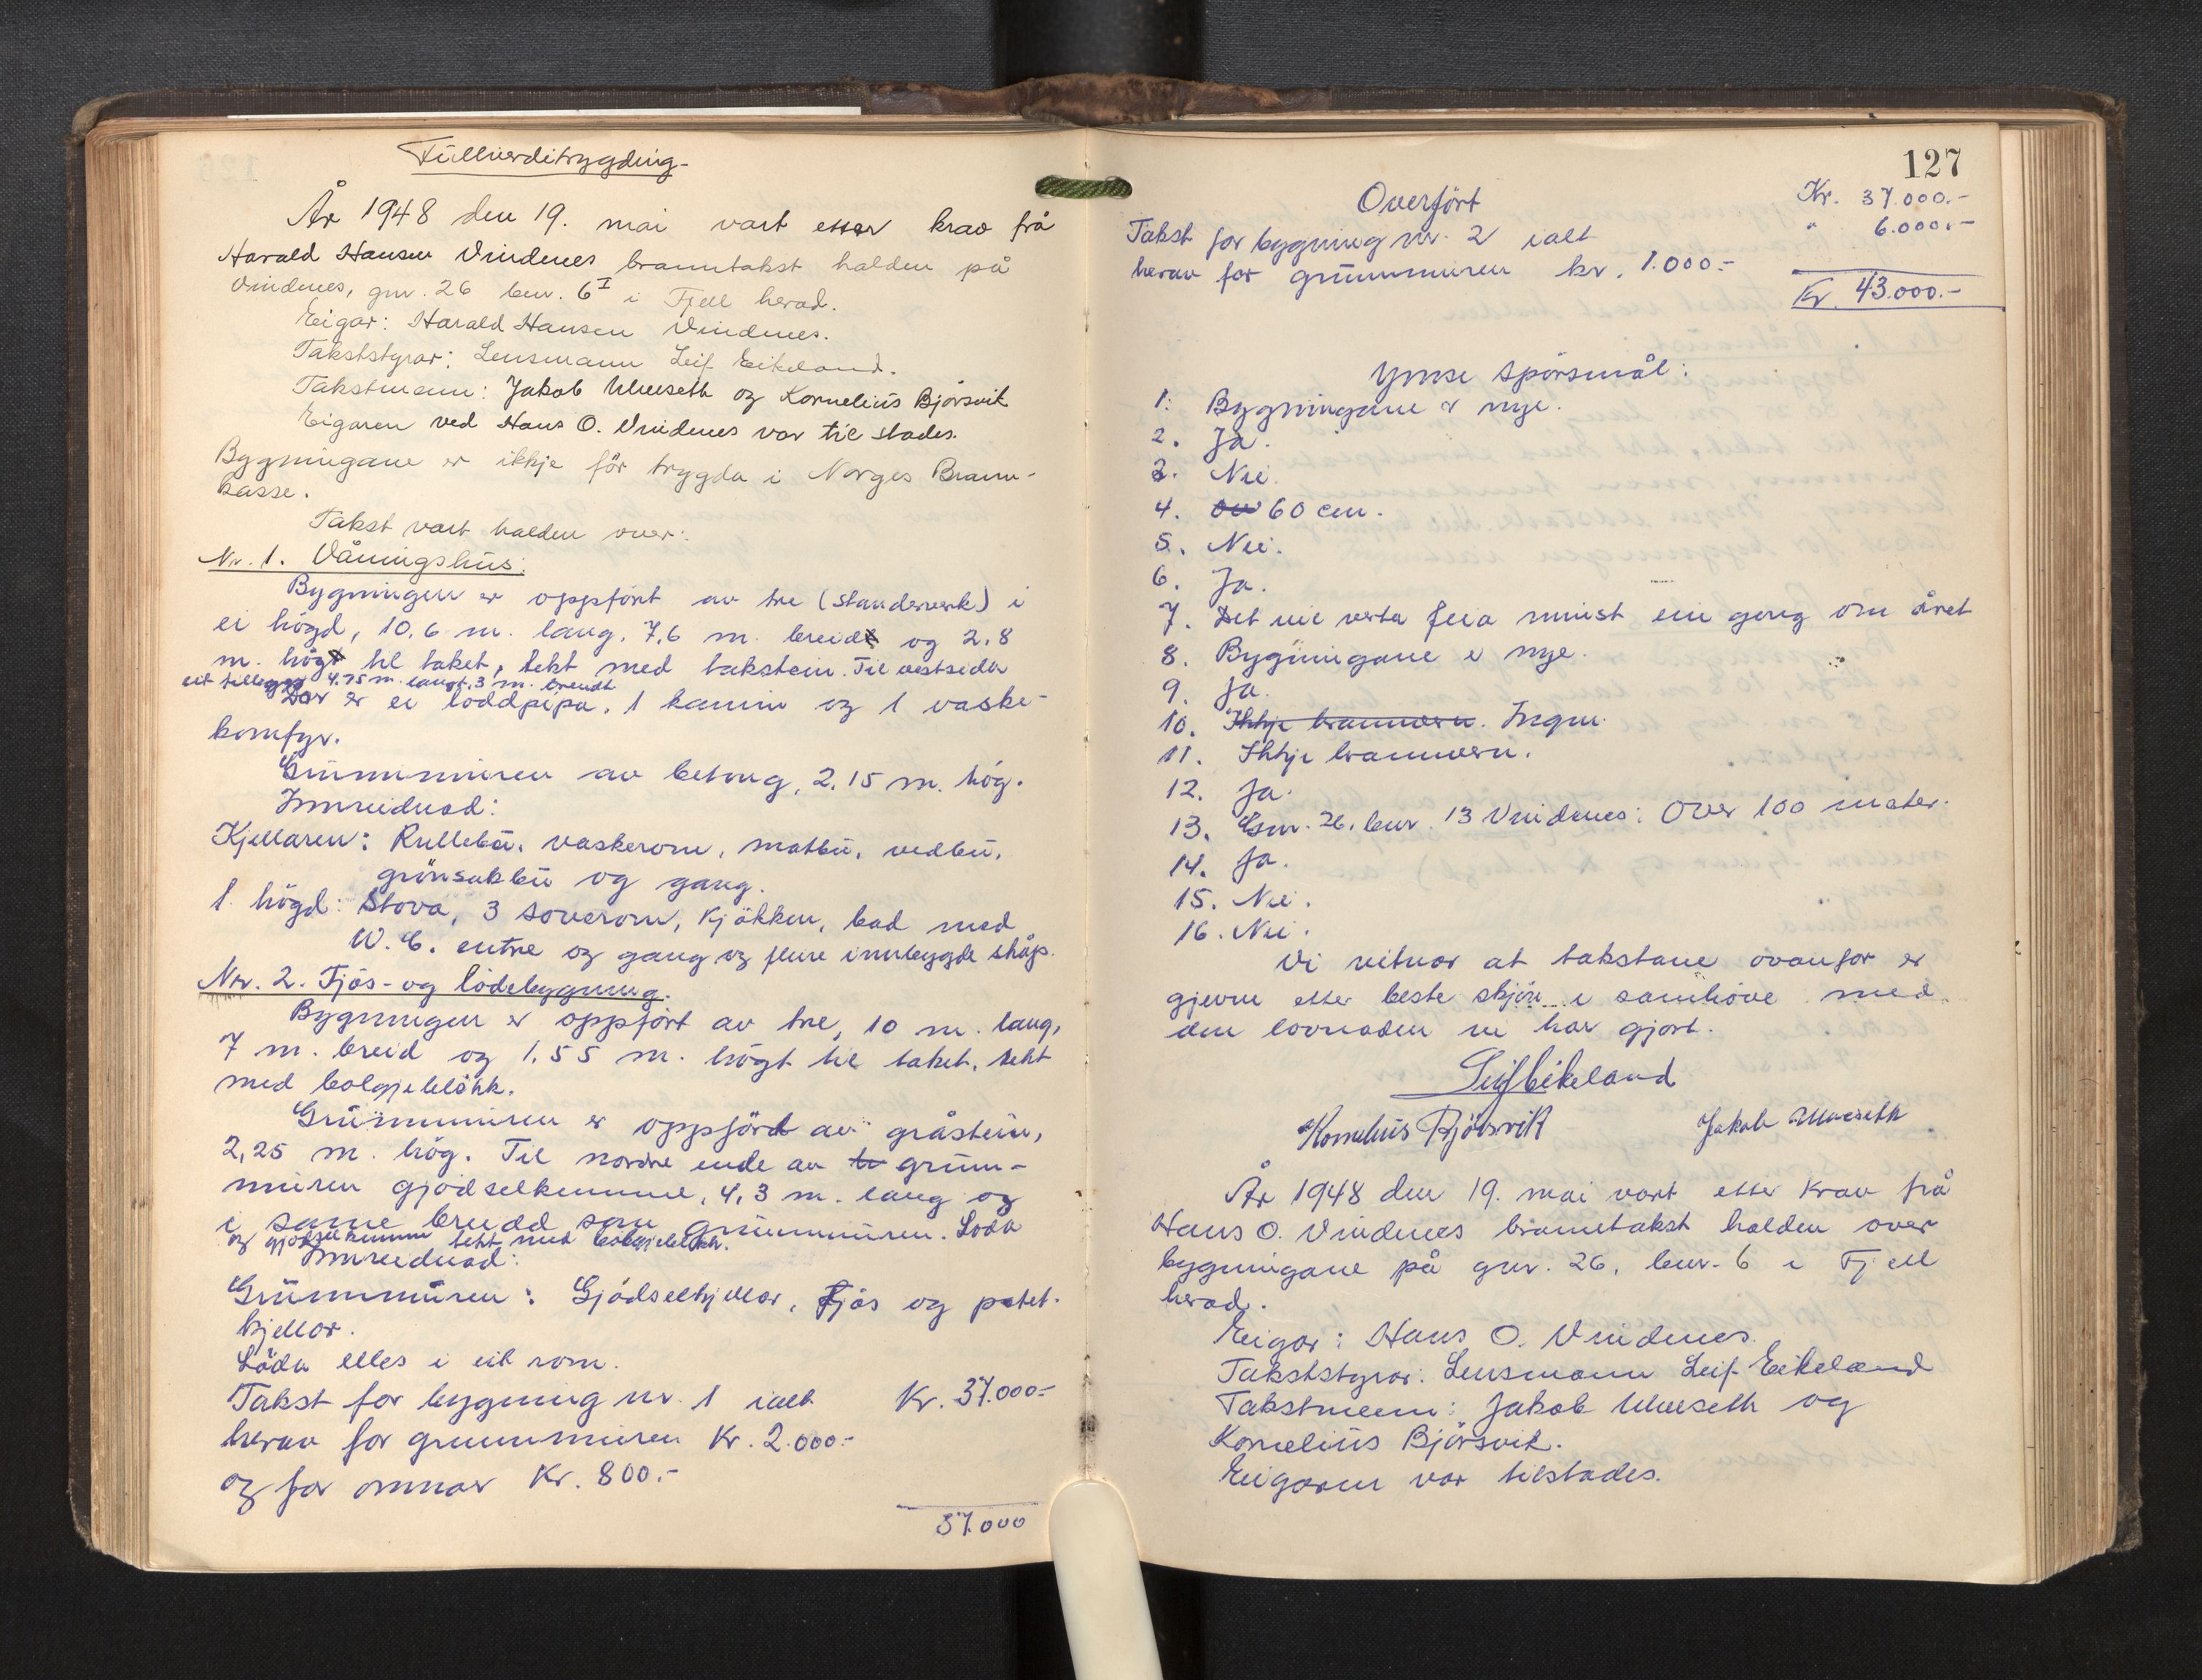 Fullverditrygding.
År 1948 den 19. mai vart etter krav frå
Harald Hansen Vindenes branntakst halden på
Vindenes, gnr. 26 bnr. 6 I i Fjell herad.
Eigar: Harald Hansen Vindenes.
Takststyrar: Lensmann Leif Eikeland.
Takstmenn: Jakob Ulveseth og Kornelius Bjørsvik
Eigaren ved Hans O. Vindenes var til stades.
Bygningane er ikkje för trygda i Norges Brann-
kasse.
Takst vart halden over:
Nr. 1. Våningshus:
Bygningen er oppfört av tre (standerverk) i
ei högd, 10,6 m. lang, 7,6 m. breid og 2,8
m. hög til taket, tekt med takstein. Til vestsida
eit tillegg 4,75 m. langt, 3 m. breidt
Der er ei loddpipa, 1 kamin og 1 vaske-
komfyr.
Grunnmuren av betong, 2,15 m. hög.
Innreidnad:
Kjellaren: Rullebu, vaskerom, matbu, vedbu,
grönsakbu og gang.
1. högd: Stova, 3 soverom, kjökken, bad med
W.C. entre og gang og fleire innbygde skåp.
Nr. 2. Fjös- og lödebygning.
Bygningen er oppfört av tre, 10 m. lang,
7 m. breid og 1,55 m. högt til taket, tekt
med bolgjeblökk.
Grunnmuren er oppförd av gråstein,
2,25 m. hög. Til nordre ende av grunn-
muren gjödselkumme, 4,3 m. lang og
i same breidd som grunnmuren. Löda
og gjödselkummen tekt med bölgjeblekk.
Innreidnad:
Grunnmuren: Gjödselkjellar, Fjös og potet-
kjellar.
Löda elles i eit rom.
Takst for bygning nr. 1 ialt Kr. 37.000.-
herav for grunnmuren Kr. 2.000.-
og for omnar Kr. 800.-
37.000
127
Overfört Kr. 37.000.-
Takst for bygning nr. 2 ialt " 6.000.-
herav for grunnmuren kr. 1.000.-
Kr. 43.000.-
Ymse spörsmål:
1. Bygningane er nye.
2. Ja.
3. Nei.
4. 60 cm.
5. Nei.
6. Ja.
7. Det vil verta feia minst ein gong om året
8. Bygningane er nye.
9. Ja.
10. Ikkje brannvern. Ingen.
11. Ikkje brannvern.
12. Ja.
13. Gnr. 26, bnr. 13 Vindenes: Over 100 meter.
14. Ja.
15. Nei.
16. Nei.
Vi vitnar at takstane ovanfor er
gjevne etter beste skjön i samhöve med
den lovnaden vi har gjort.
Leif Eikeland
Kornelius Bjørsvik Jakob Ulveseth
År 1948 den 19. mai vart etter krav frå
Hans O. Vindenes branntakst halden over
bygningane på gnr. 26, bnr. 6 i Fjell
herad.
Eigar: Hans O. Vindenes.
Takststyrar: Lensmann Leif Eikeland
Takstmenn: Jakob Ulveseth og
Kornelius Bjørsvik.
Eigaren var tilstades.